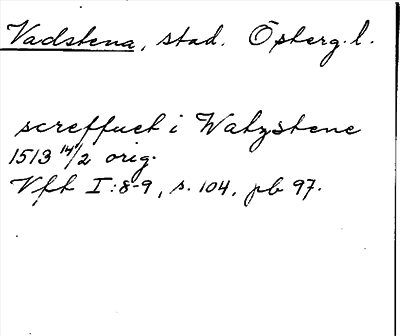 Vadstena, stad. Österg. l.
screffuet i Watzstene
1513 14/2 orig.
Vfh I:8-9, s. 104, pb 97.